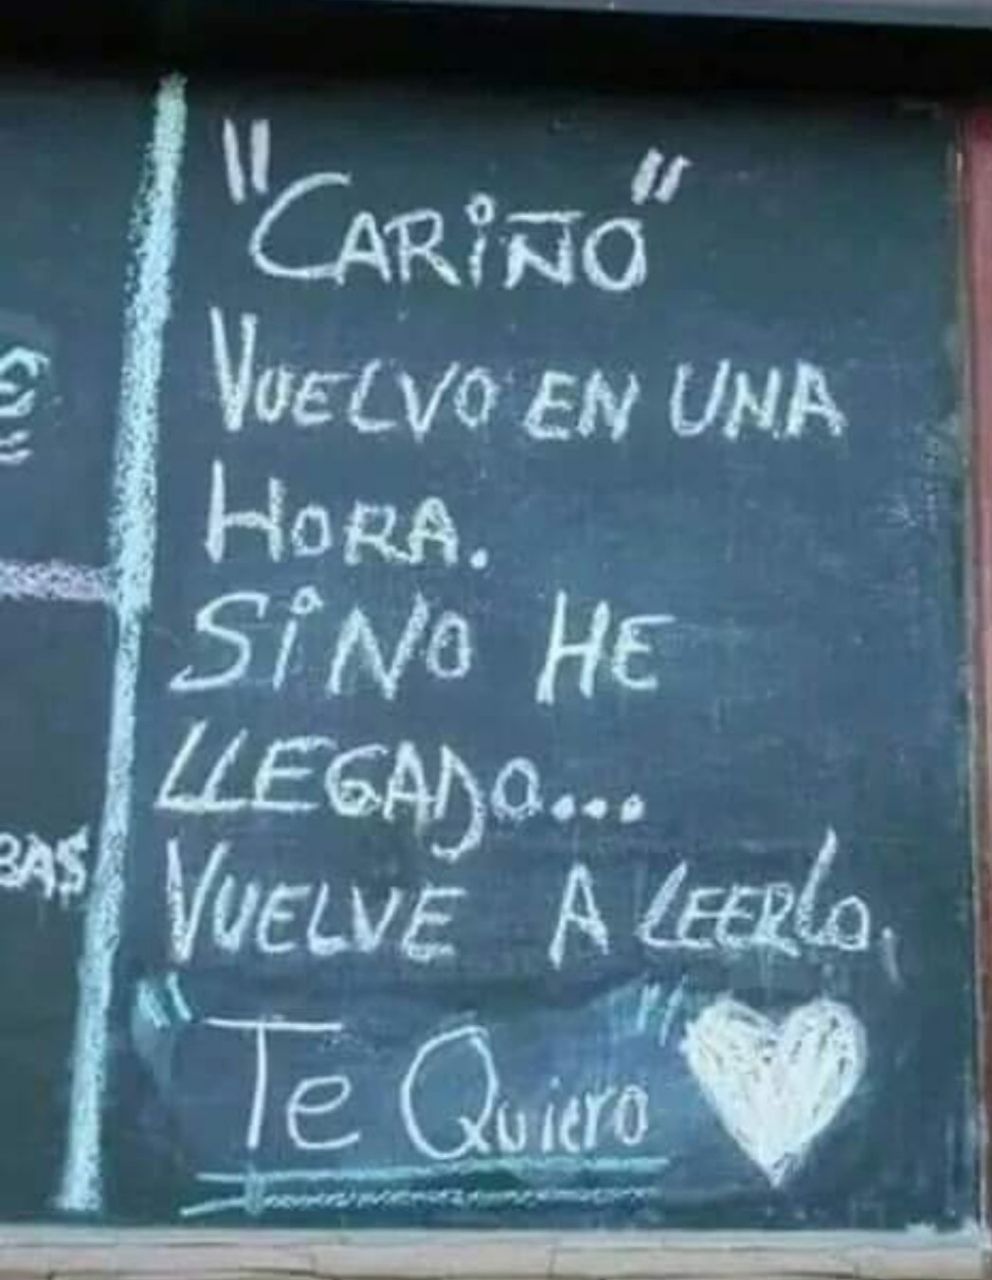 "CARIÑO"
VUELVO EN UNA
HORA.
SI NO HE
LLEGADO...
VUELVE A LEERLO.
"Te Quiero"
BAS